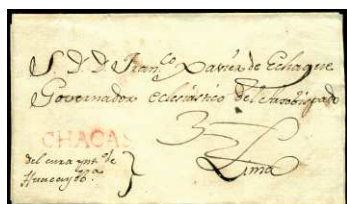 S. D. D. Franco Xavier de Echague
Governador eclesiastico del Arzobispado
3
CHACAS
Lima
del cura ynt.o de
Huacayb